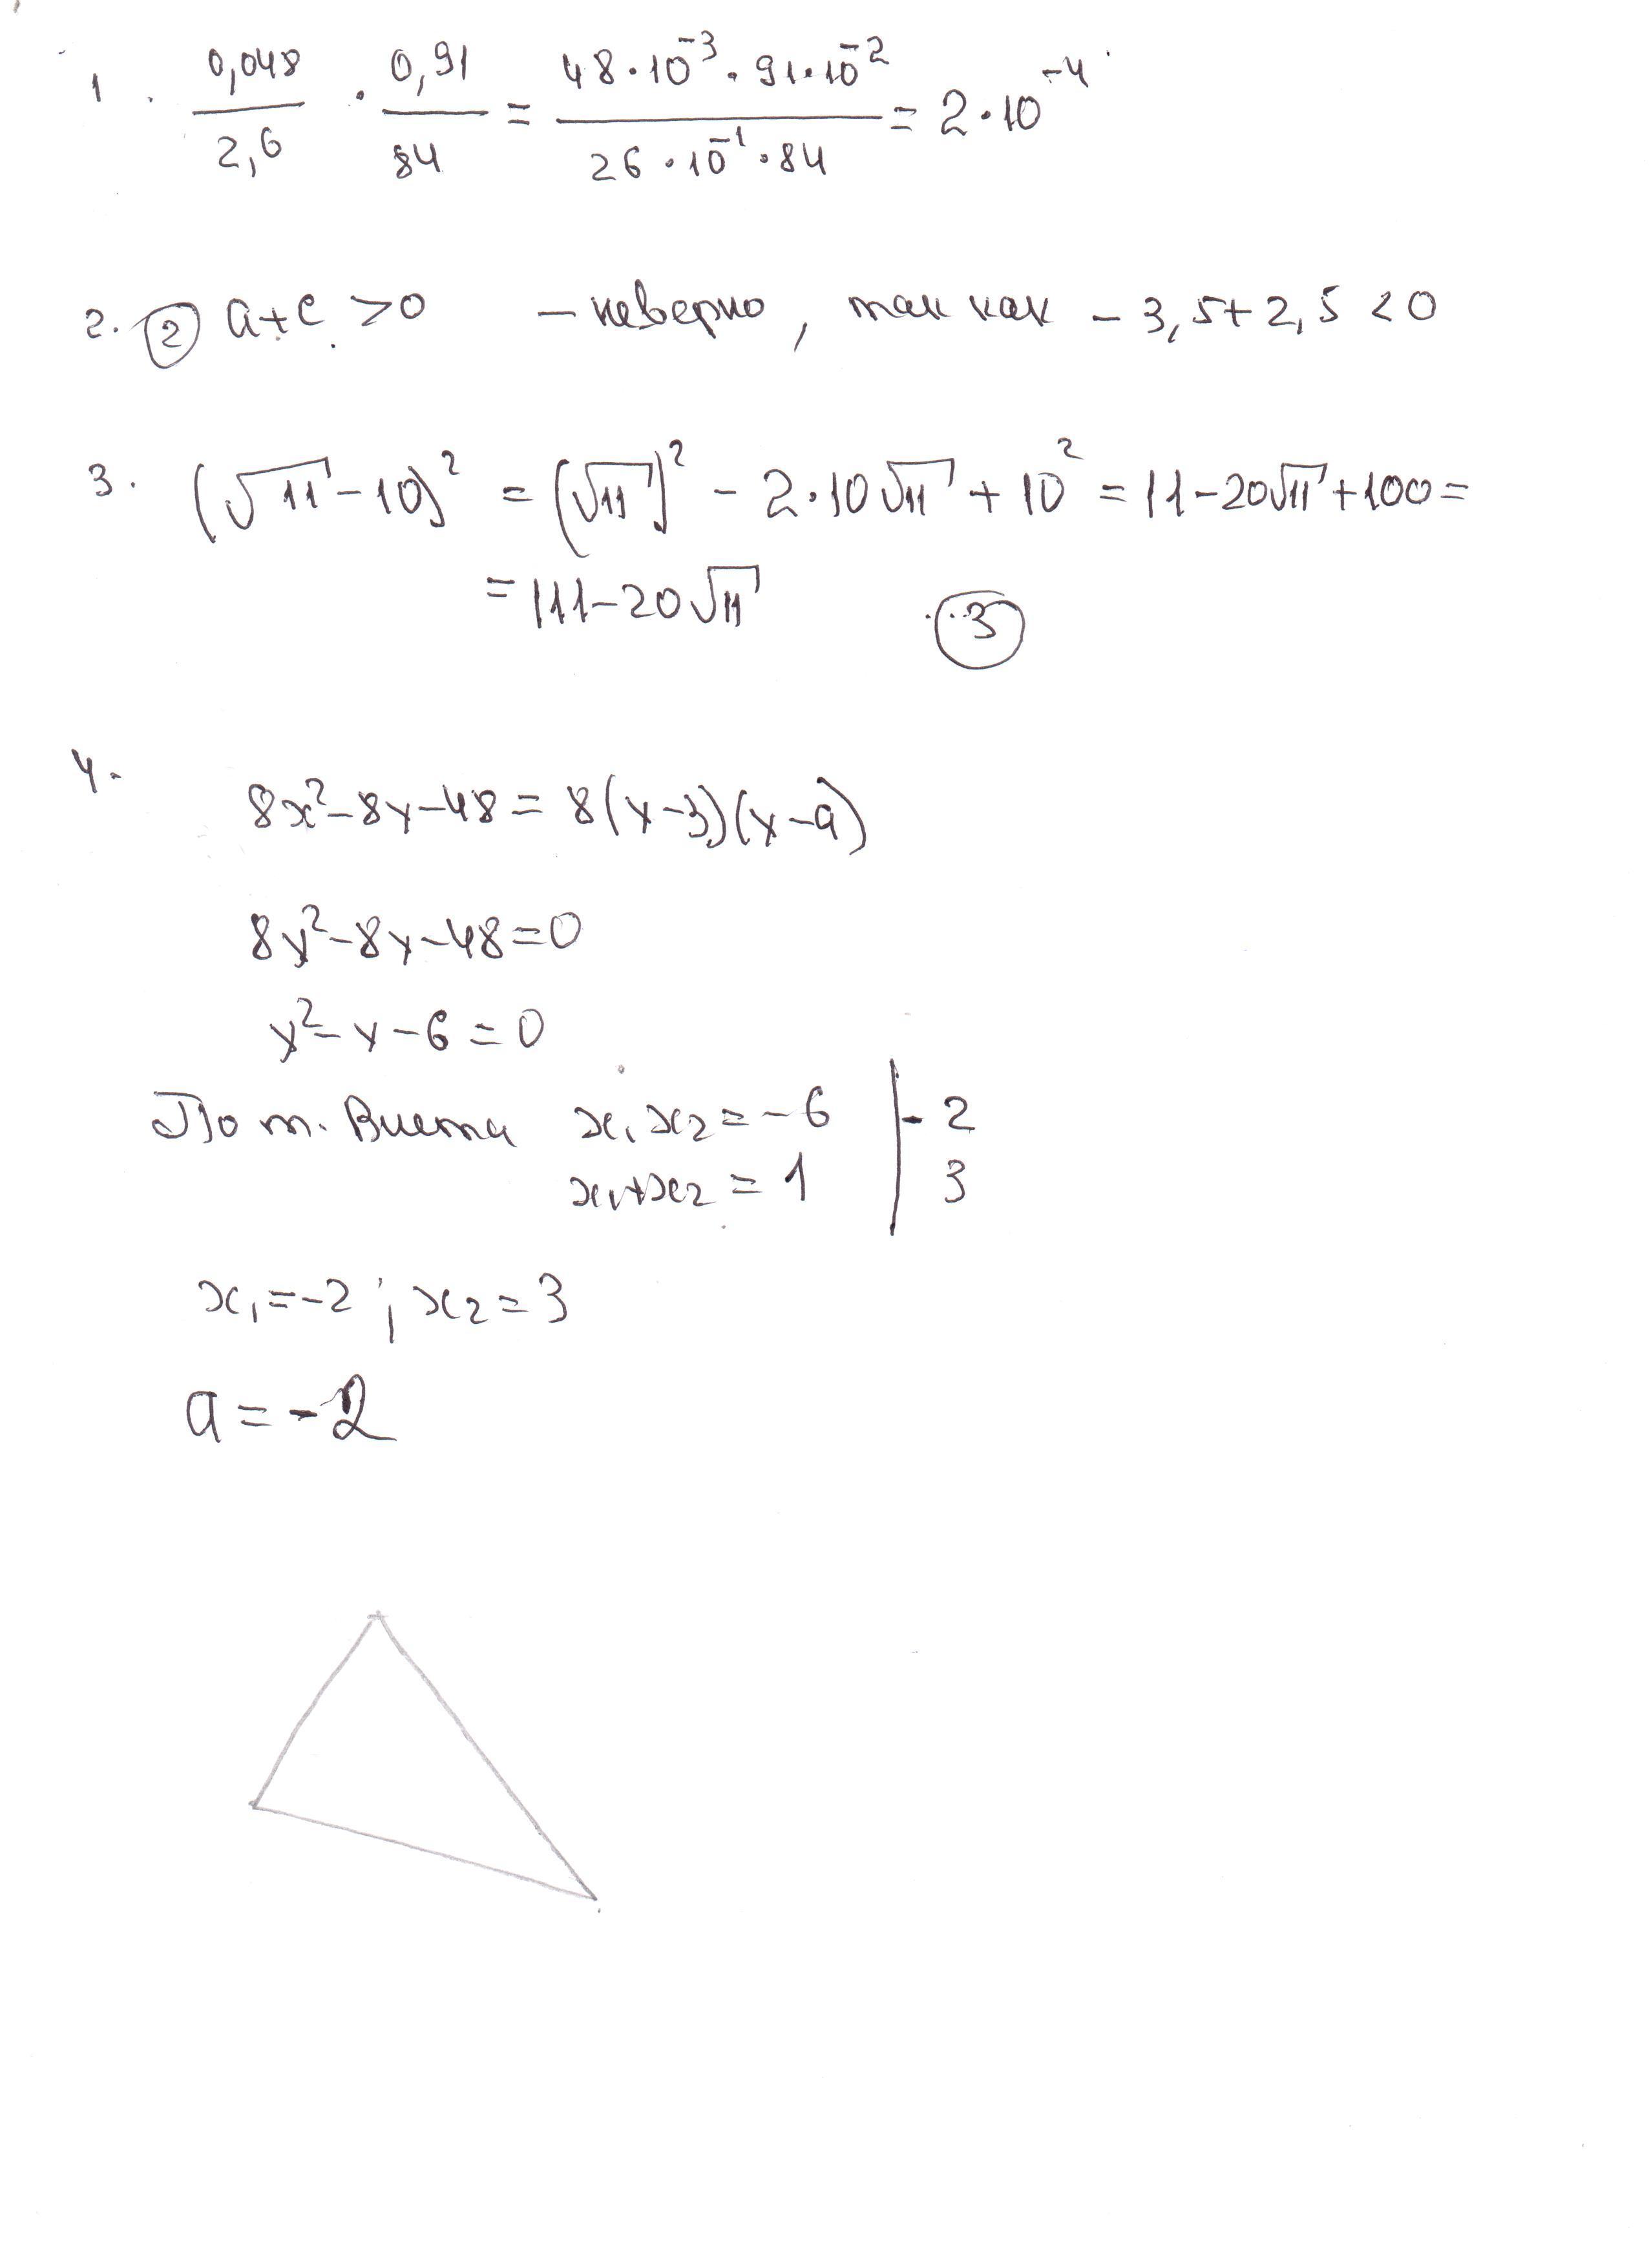 1. 0,048/2,6 · 0,91/84 = 48·10⁻³·91·10⁻²/26·10⁻¹·84 = 2·10⁻⁴
2. ② a+c >0 – неверно, так как – 3,5+2,5 <0
3. (√11-10)² = (√11)² - 2·10√11 + 10² = 11-20√11+100=
= 111-20√11 ③
4.
8x²-8x-48= 8(x-3)(x-a)
8x²-8x-48=0
x²-x-6=0
По т. Виета x₁x₂=-6 | -2
x₁+x₂=1 | 3
x₁=-2; x₂=3
a=-2